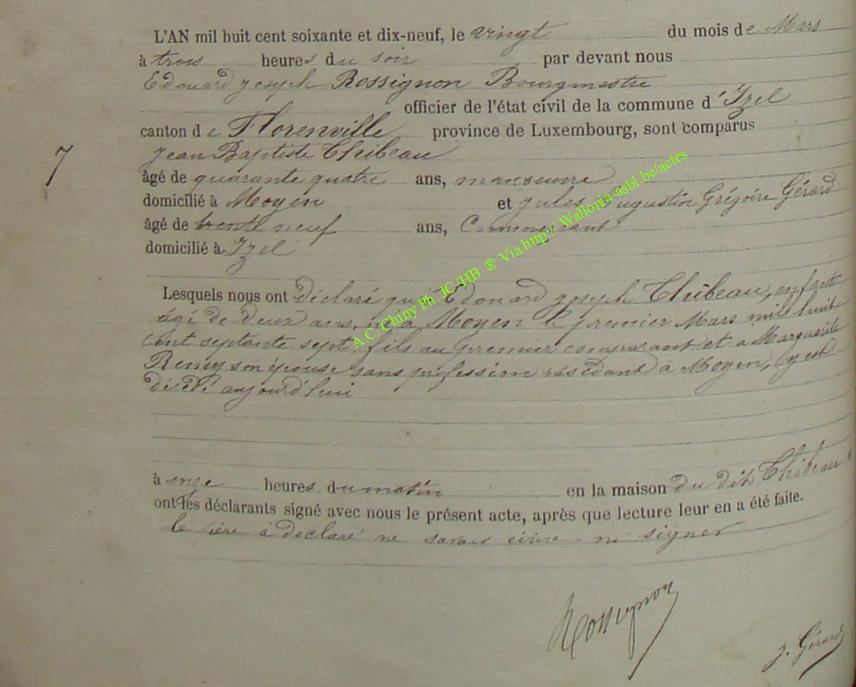 L'AN mil huit cent soixante et dix-neuf, le vingt du mois de Mars
à trois heures du soir par devant nous
Edouard Joseph Rossignon Bourgmestre
officier de l'état civil de la commune d'Izel
canton de Florenville province de Luxembourg, sont comparus
Jean Baptiste Thibeau
7
âgé de quarante quatre ans, manoeuvre
domicilié à Moyen et Jules Augustin Grégoire Gérard
âgé de trente neuf ans, Commerçant
domicilié à Izel
Lesquels nous ont déclaré qu'Edouard Joseph Thibeau, enfant
âgé de deux ans, né à Moyen le premier Mars mil huit
cent septante sept, fils au premier comparant et a Marguerite
Remy son épouse sans profession résidant à Moyen, y est
décédé aujourd'hui
à onze heures du matin en la maison du dit Thibeau &
ont les déclarants signé avec nous le présent acte, après que lecture leur en a été faite.
le père à déclaré ne savoir écrire ni signer
Rossignon
J. Gérard
A.C. Chiny Ph. JC/HB ® Via http://Wallonia-asbl.be/actes